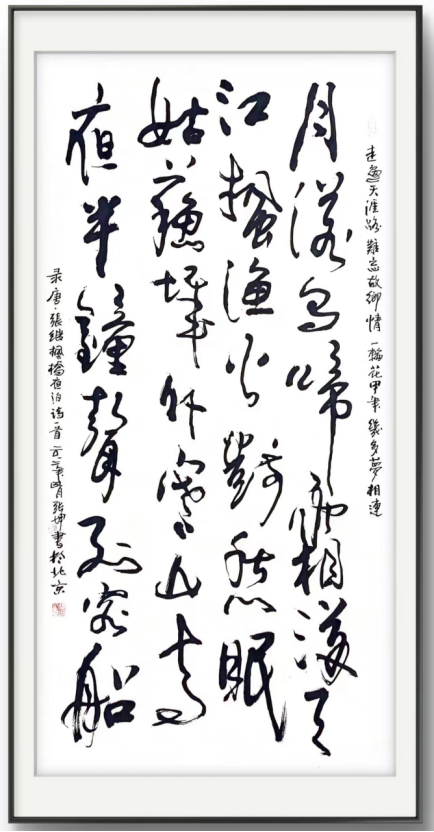 走遍天涯路 難忘故鄉情 一輪花甲年 幾多夢相連
月落烏啼霜滿天
江楓漁火對愁眠
姑蘇城外寒山寺
夜半鐘聲到客船
录唐·張继楓橋夜泊诗一首 坤書於北京